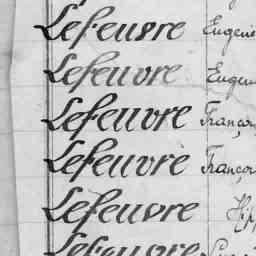 Lefeuvre Eugéni
Lefeuvre Eugén
Lefeuvre Françoi
Lefeuvre Françoi
Lefeuvre Hipp
Lefeuvre